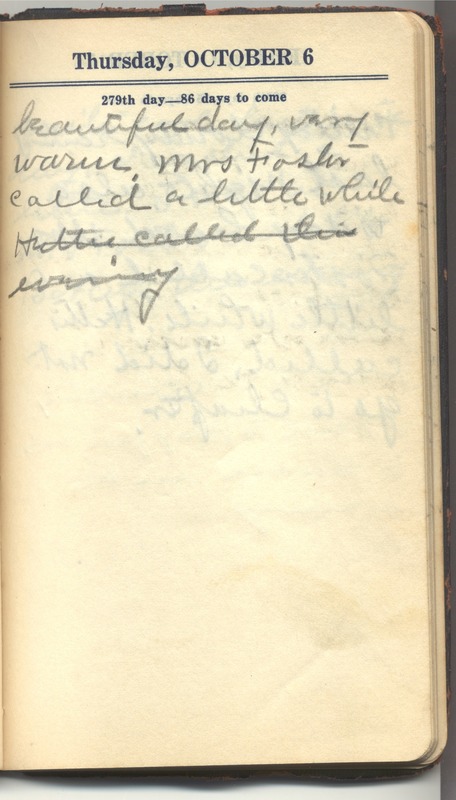 Thursday, OCTOBER 6
279th day—86 days to come
beautiful day, very
warm. Mrs Foster
called a little while
Hettie called this
evening